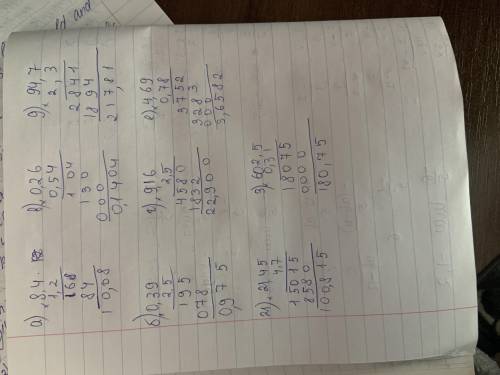 а) × 8,4
1,2
168
84
10,08
в) × 0,26
0,54
104
130
000
0,1404
д) × 94,7
2,3
2841
1894
217,81
б) × 0,39
2,5
195
078
0,975
г) × 9,16
2,5
4580
1832
22,900
е) × 4,69
0,78
3752
3283
000
3,6582
ж) × 21,45
4,7
15015
8580
100,815
з) × 602,5
0,3
18075
0000
180,75
and